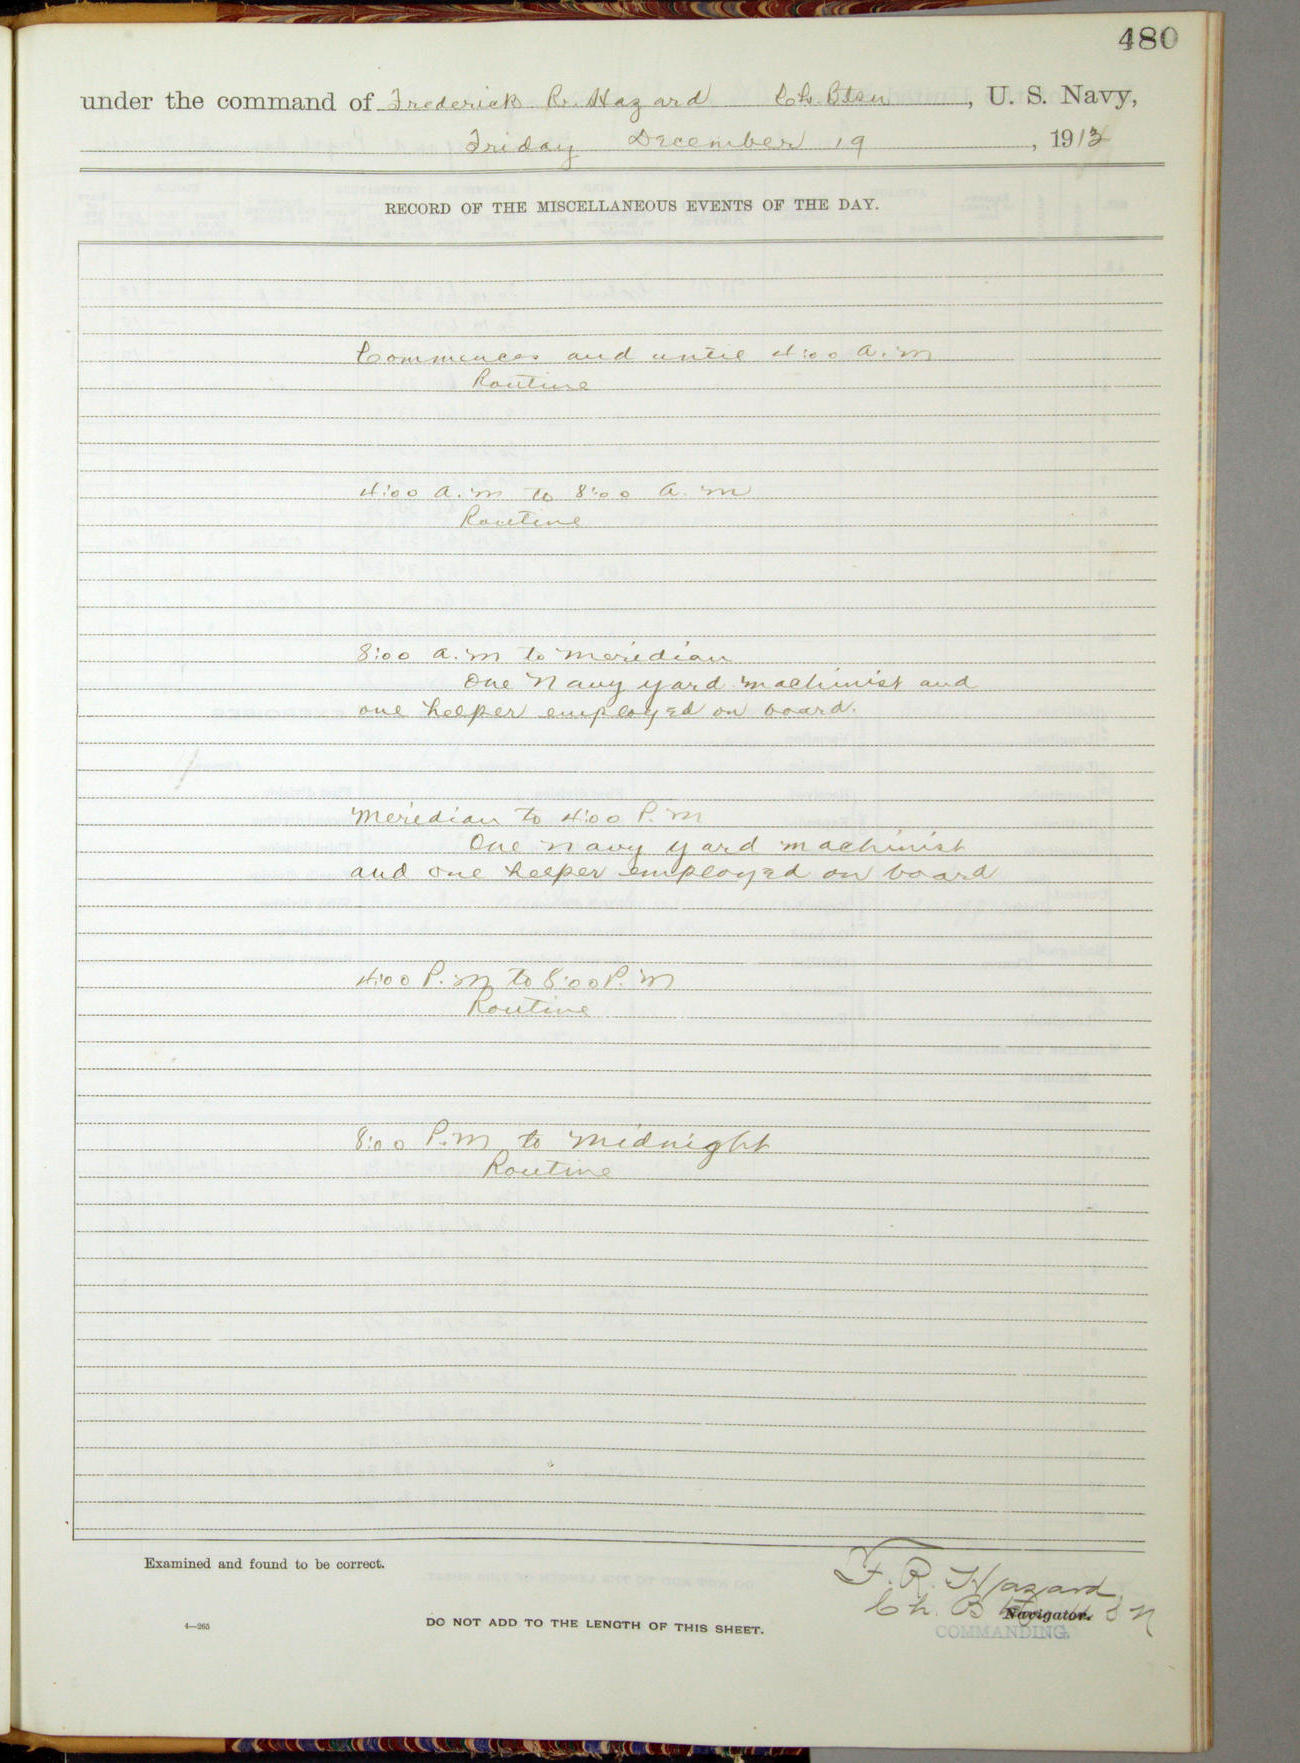 480
under the command of Frederick R. Hazard Ch. Btsn, U. S. Navy,
Friday December 19, 1913
RECORD OF THE MISCELLANEOUS EVENTS OF THE DAY.
Commences and until 4:00 a.m
Routine
4:00 a.m to 8:00 a.m
Routine
8:00 a.m to meridian
One Navy yard machinist and
one helper employed on board.
Meridian to 4:00 P.m
One navy yard machinist
and one helper employed on board
4:00 P.m to 8:00 P.m
Routine
8:00 P.m to midnight
Routine
Examined and found to be correct.
F. R. Hazard
Ch. Navigator.
COMMANDING.
4—265
DO NOT ADD TO THE LENGTH OF THIS SHEET.